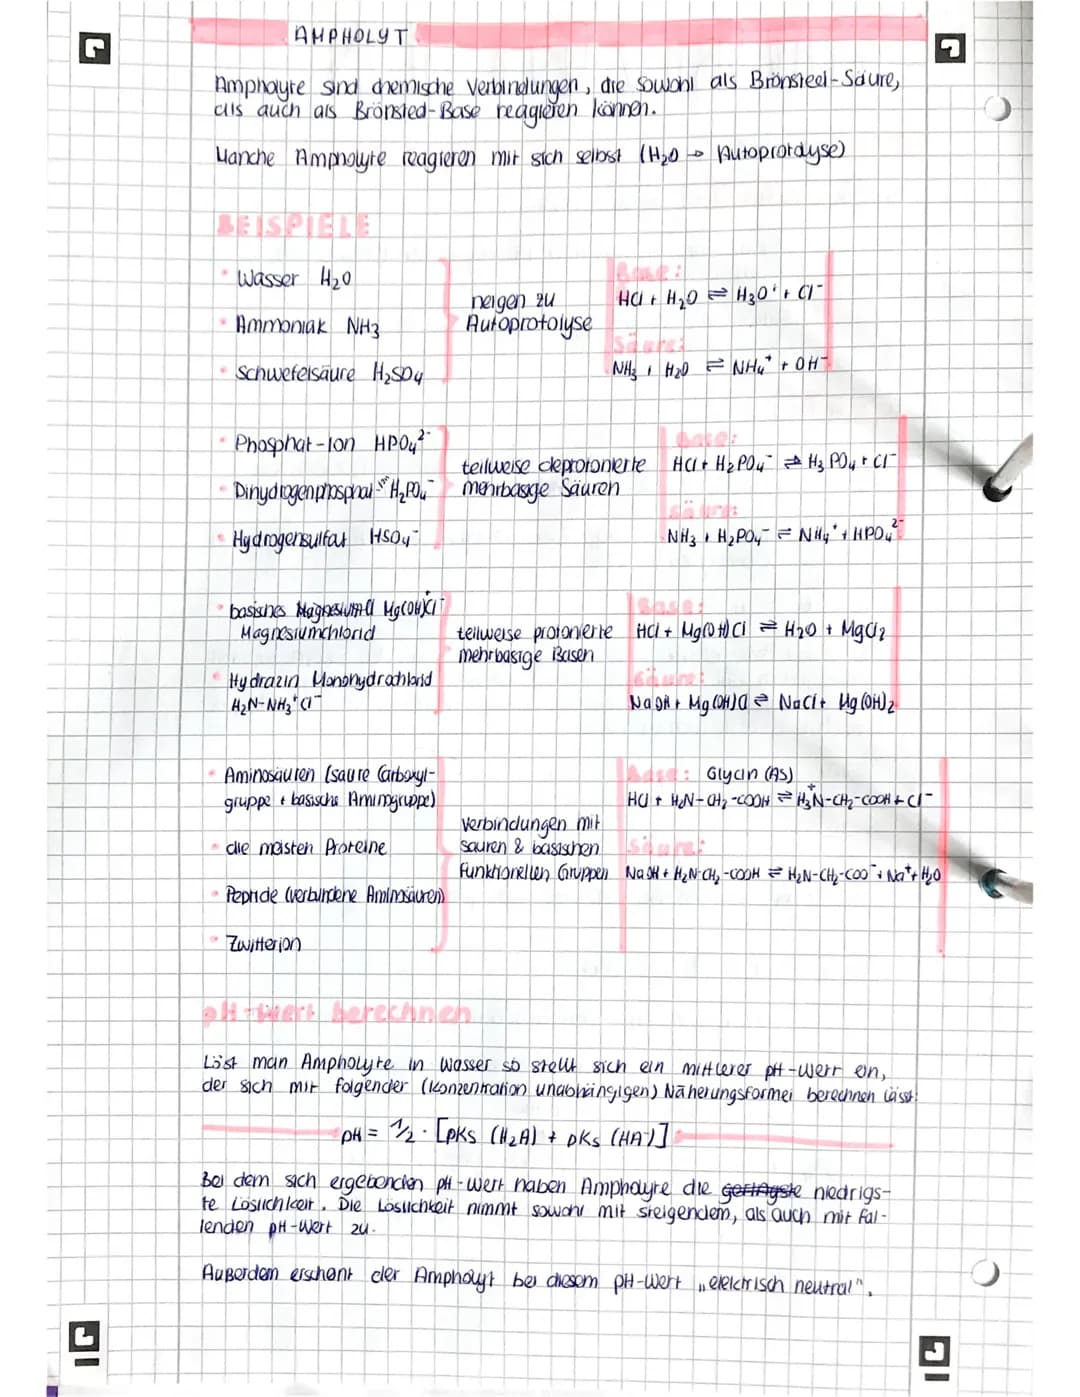 AMPHOLYT
Ampholyte sind chemische Verbindungen, die sowohl als Brönsteel-Säure,
als auch als Brönsted-Base reagieren können.
Manche Ampholyte reagieren mit sich selbst (H₂O → Autoprotolyse)
BEISPIELE
• Wasser H₂O
• Ammoniak NH₃
• Schwefelsäure H₂SO₄
neigen zu
Autoprotolyse
Base:
HCl + H₂O ⇌ H₃O⁺ + Cl⁻
Säure:
NH₃ + H₂O ⇌ NH₄⁺ + OH⁻
• Phosphat-Ion HPO₄²⁻
• Dinydrogenphosphat H₂PO₄⁻
• Hydrogensulfat HSO₄⁻
teilweise deprotonierte
mehrbasige Säuren
Base:
HCl + H₂PO₄⁻ ⇌ H₃PO₄ + Cl⁻
Säure:
NH₃ + H₂PO₄⁻ ⇌ NH₄⁺ + HPO₄²⁻
• basisches Mg(OH)Cl
Magnesiumchlorid
• Hydrazin Monohydrochlorid
H₂N-NH₃⁺Cl⁻
teilweise protonierte
mehrbasige Basen
Base:
HCl + Mg(OH)Cl ⇌ H₂O + MgCl₂
Säure:
NaOH + Mg(OH)Cl ⇌ NaCl + Mg(OH)₂
• Aminosäuren (saure Carboxyl-
gruppe + basische Aminogruppe)
• die meisten Proteine
• Peptide (verbundene Aminosäuren)
• Zwitterion
Verbindungen mit
sauren & basischen
Funktionellen Gruppen
Base: Glycin (AS)
HCl + H₂N-CH₂-COOH ⇌ H₃N⁺-CH₂-COOH + Cl⁻
Säure:
NaOH + H₂N-CH₂-COOH ⇌ H₂N-CH₂-COO⁻ + Na⁺ + H₂O
pH-Wert berechnen
Löst man Ampholyte in Wasser so stellt sich ein mittlerer pH-Wert ein,
der sich mit folgender (konzentration unabhängigen) Näherungsformel berechnen lässt:
pH = 1/2 · [pKs (H₂A) + pKs (HA⁻)]
Bei dem sich ergebenden pH-Wert haben Ampholyte die geringste niedrigs-
te Löslichkeit. Die Löslichkeit nimmt sowohl mit steigendem, als auch mit fal-
lenden pH-Wert zu.
Außerdem erscheint der Ampholyt bei diesem pH-Wert „elektrisch neutral".